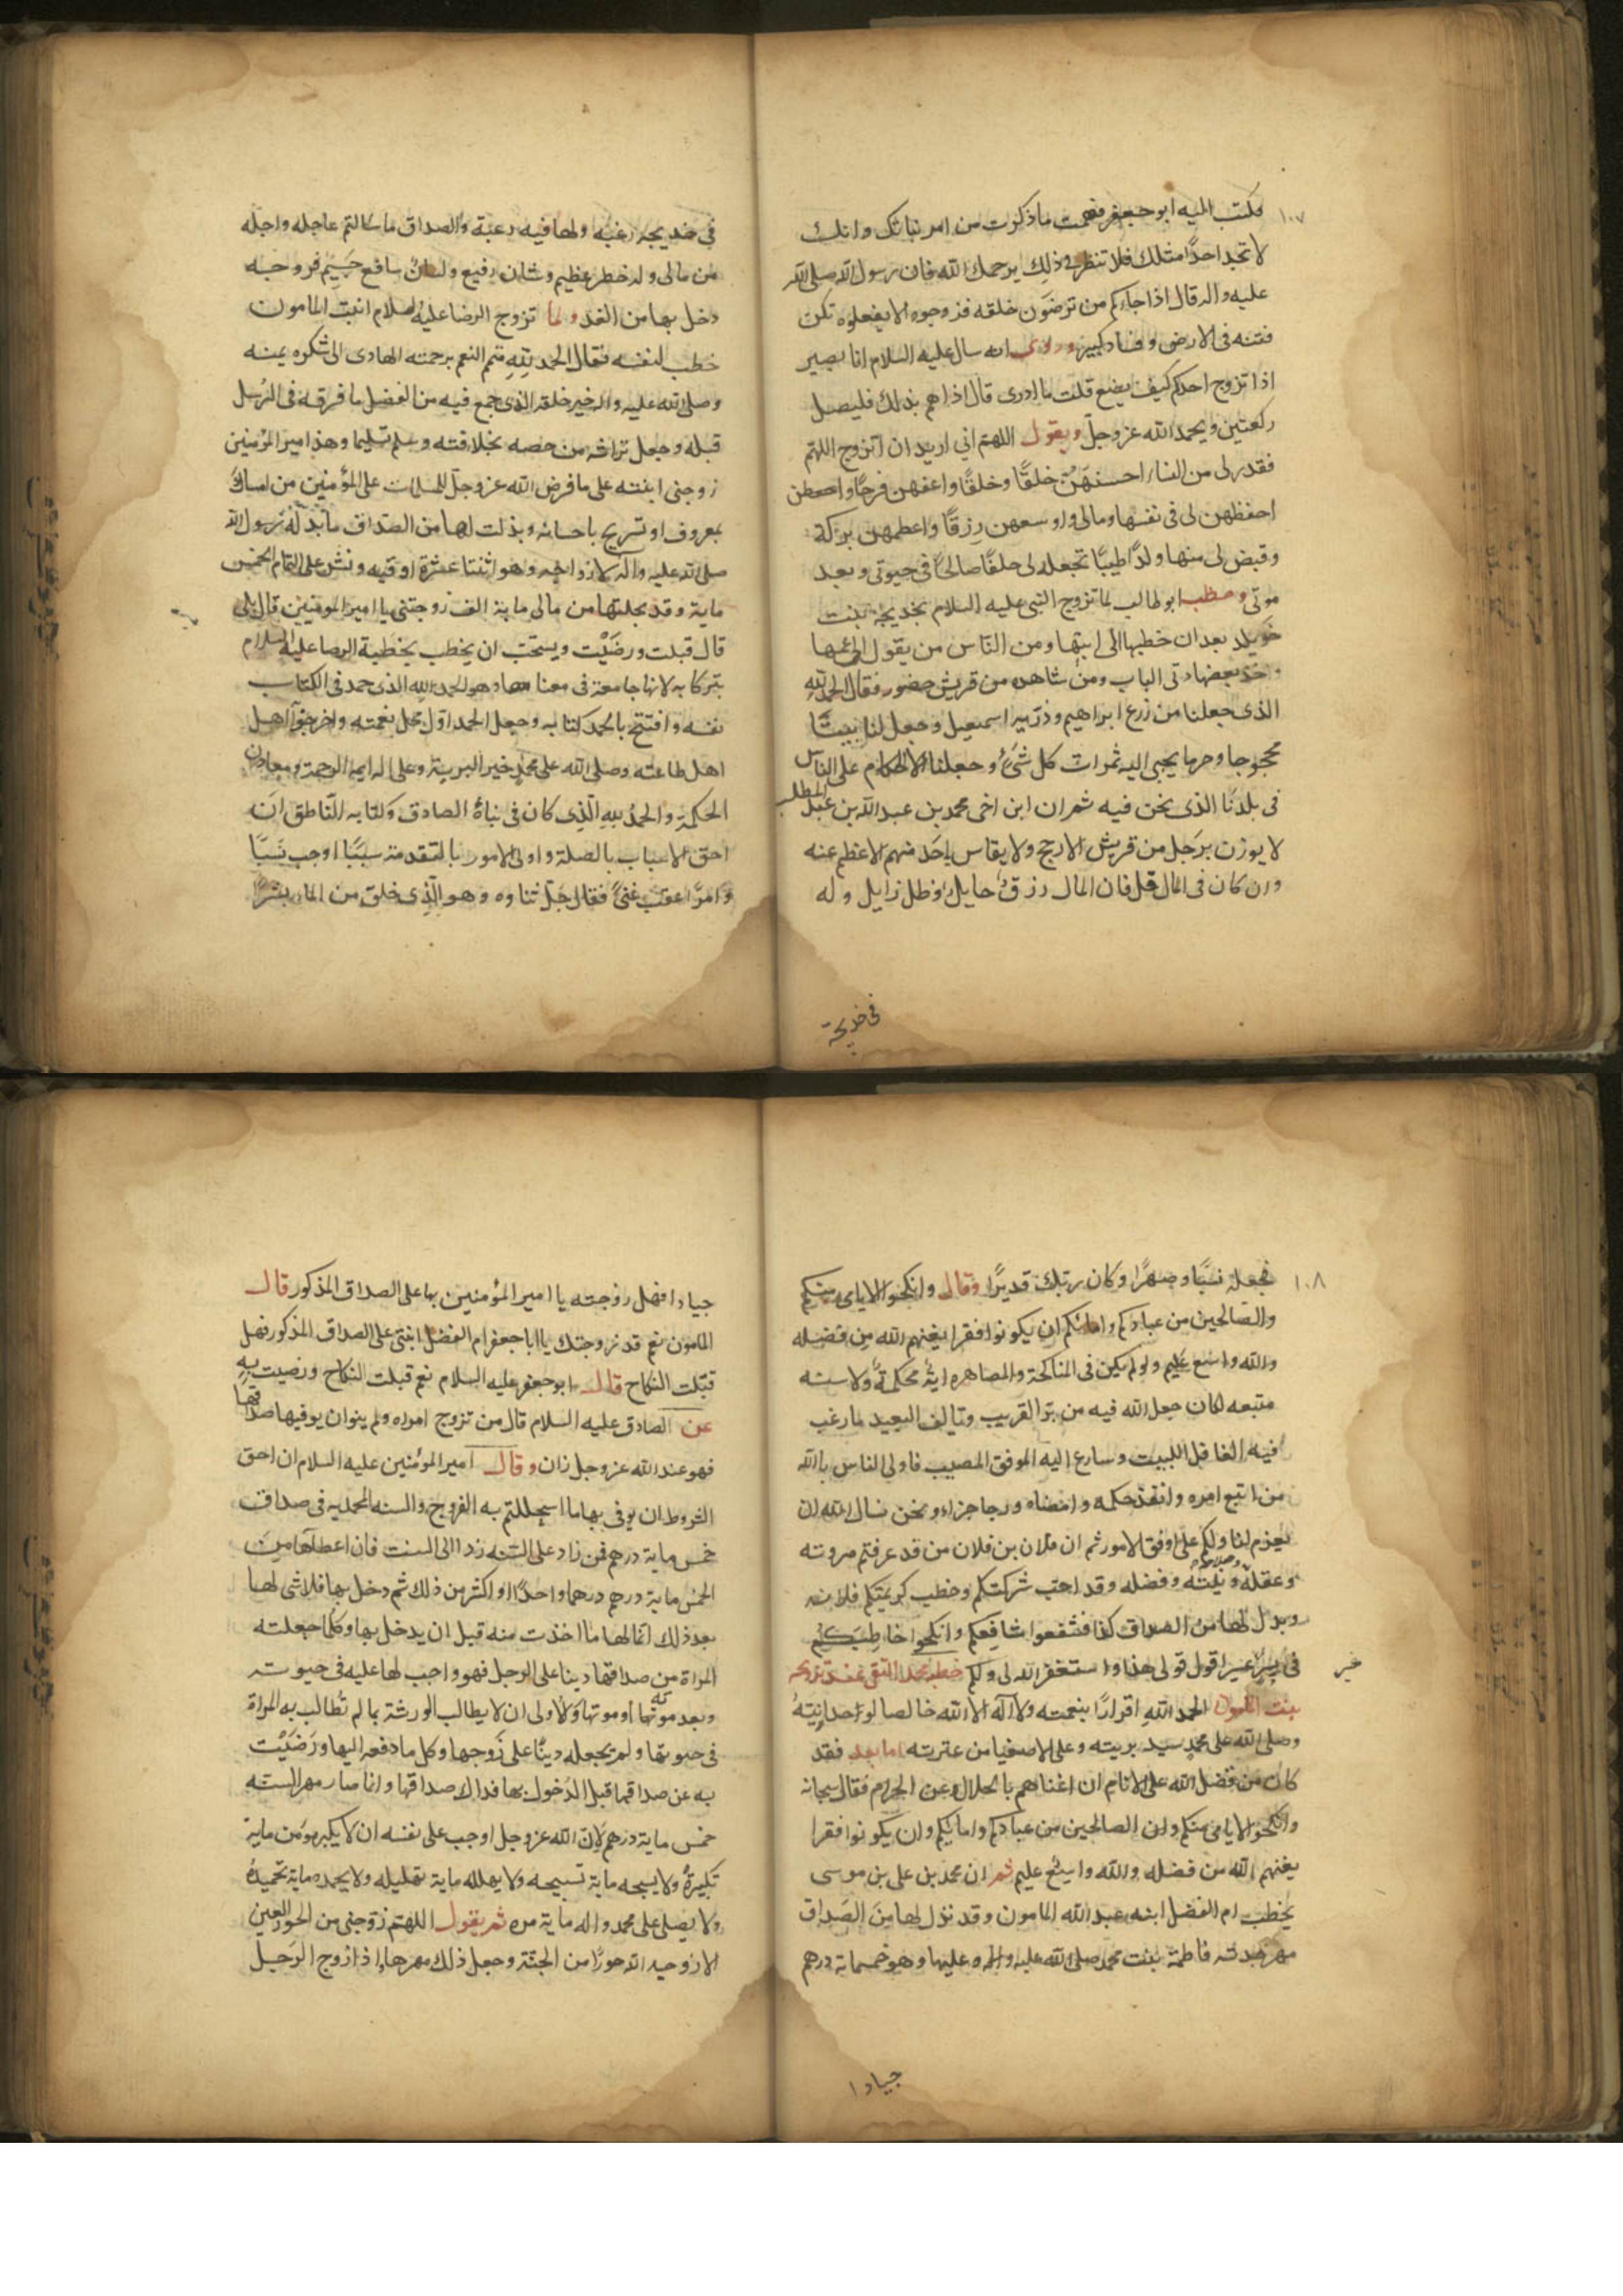 ١٠٧
فكتب اليه ابو جعفر فهمت ماذكرت من امر بناتك وانك
لا تجد احدًا مثلك فلا تنظر فى ذلك يرحمك الله فان رسول الله صلى الله
عليه واله قال اذا جاءكم من ترضون خلقه فزوجوه الا يفعلوه تكن
فتنه فى الارض وفساد كبير وروى انه سال عليه السلام ابا بصير
اذا تزوج احدكم كيف يصنع قلت ما ادرى قال اذا هم بذلك فليصل
ركعتين ويحمد الله عز وجل ويقول اللهم انى اريد ان اتزوج اللهم
فقدر لى من النساء احسنهن خلقًا وخلقًا واعفهن فرجًا و
احفظهن لى فى نفسها ومالى واوسعهن رزقًا واعظمهن بركة
وقيض لى منها ولدًا طيبًا تجعله لى خلفًا صالحًا فى حيوتى وبعد
موتى وخطب ابو طالب لما تزوج النبى عليه السلام بخديجة بنت
خويلد بعد ان خطبها الى ابيها ومن الناس من يقول الى عمها
واخذ بعضادتى الباب ومن شاهده من قريش حضور فقال الحمد لله
الذى جعلنا من زرع ابراهيم وذرية اسمعيل وجعل لنا بيتًا
محجوجا وحرما يجبى اليه ثمرات كل شىء وجعلنا الاحكام على الناس
فى بلدنا الذى نحن فيه ثم ان ابن اخى محمد بن عبد الله بن عبد المطلب
لا يوزن برجل من قريش الا رجح ولا يقاس باحد منهم الا عظم عنه
وان كان فى المال قل فان المال رزق حايل وظل زايل وله
فى خديجة
فى خديجه رغبه ولها فيه رغبة والصداق ما سالتم عاجله واجله
من مالى وله خطر عظيم وشان رفيع ولسان شافع جسيم فزوجه
دخل بها من الغد ولما تزوج الرضا عليه السلام ابنت المامون
خطب لنفسه فقال الحمد لله متمم النعم برحمته الهادى الى شكره بمنه
وصلى الله عليه واله خير خلقه الذى جمع فيه من الفضل ما فرقه فى الرسل
قبله وجعل تراثه من خصه بخلافته وسلم تسليما وهذا امير المؤمنين
زوجنى ابنته على ما فرض الله عز وجل للمسلمات على المؤمنين من امساك
بمعروف او تسريح باحسان وبذلت لها من الصداق ما بذله رسول الله
صلى الله عليه واله لازواجه وهو اثنتا عشرة اوقيه ونش على التمام الخمس
ماية وقد نحلتها من مالى ماية الف زوجتنى يا امير المومنين قال بلى
قال قبلت ورضيت ويستحب ان يخطب بخطبة الرضا عليه السلام
تبركا به لانها جامعة فى معناها وهو الحمد لله الذى حمد فى الكتاب
نفسه وافتتح بالحمد كتابه وجعل الحمد اول محل نعمته واخر جزآ اهل
اهل طاعته وصلى الله على محمد خير البرية وعلى اله ايمه الرحمة ومعادن
الحكمة والحمد لله الذى كان فى نباه الصادق وكتابه الناطق ان
احق الاسباب بالصلة واولى الامور بالتقدمة سببًا اوجب نسبًا
وامرًا اعقب غنىً فقال جل ثناوه وهو الذى خلق من الماء بشرًا
١٠٨
فجعله نسبًا وصهرًا وكان ربك قديرًا وقال وانكحوا الايامى منكم
والصالحين من عبادكم وامائكم ان يكونوا فقرا يغنهم الله من فضله
والله واسع عليم ولو لم يكن فى المناكحة والمصاهره اية محكمة ولا سنه
متبعه لكان جعل الله فيه من بر القريب وتالف البعيد ما رغب
فيه العاقل اللبيب وسارع اليه الموفق المصيب فاولى الناس بالله
من اتبع امره وانفذ حكمه وامضاه ورجا جزاءه ونحن نسال الله ان
يعزم لنا ولكم على اوفق الامور ثم ان فلان بن فلان من قد عرفتم مروته
وعقله وصلاحه ونيته وفضله وقد احب شركتكم وخطب كريمتكم فلانه
وبذل لها من الصداق كذا فشفعوا شافعكم وانكحوا خاطبكم
فى يسر غير عسر اقول قولى هذا واستغفر الله لى ولكم خطبه محمد التقى عند تزويجه
خبر
بنت المامون الحمد لله اقرارًا بنعمته ولا اله الا الله خالصا لوحدانيته
وصلى الله على محمد سيد بريته وعلى الاصفيا من عترته اما بعد فقد
كان من فضل الله على الانام ان اغناهم بالحلال عن الحرام فقال سبحانه
وانكحوا الايامى منكم والصالحين من عبادكم وامائكم وان يكونوا فقرا
يغنهم الله من فضله والله واسع عليم ثم ان محمد بن على بن موسى
يخطب ام الفضل ابنه عبد الله المامون وقد بذل لها من الصداق
مهر جدته فاطمة بنت محمد صلى الله عليه واله وعليها وهو خمسماية درهم
جيادا
جيادا فهل زوجته يا امير المؤمنين بها على الصداق المذكور قال
المامون نعم قد زوجتك يا ابا جعفر ام الفضل ابنتى على الصداق المذكور فهل
قبلت النكاح قال ابو جعفر عليه السلام نعم قبلت النكاح ورضيت به
عن الصادق عليه السلام قال من تزوج امراه ولم ينو ان يوفيها صداقها
فهو عند الله عز وجل زان وقال امير المؤمنين عليه السلام ان احق
الشروط ان يوفى بها ما استحللتم به الفروج والسنه المحمديه فى صداق
خمس ماية درهم فمن زاد على السنه زد الى السنت فان اعطاها من
الخمس ماية درهم درهما واحدًا او اكثر من ذلك ثم دخل بها فلا شى لها
بعد ذلك انما لها ما اخذت منه قبل ان يدخل بها وكلما جعلته
المراة من صداقها دينا على الرجل فهو واجب لها عليه فى حيوته
وبعد موته او موتها والاولى ان لا يطالب الورثة بما لم تطالب به المراة
فى حيوتها ولم يجعله دينًا على زوجها وكل ما دفعه اليها ورضيت
به عن صداقها قبل الدخول بها فذاك صداقها وانما صار مهر السنه
خمس ماية درهم لان الله عز وجل اوجب على نفسه ان لا يكبره مؤمن ماية
تكبيرة ولا يسبحه ماية تسبيحه ولا يهلله ماية تهليله ولا يحمده ماية تحميدة
ولا يصلى على محمد واله ماية مره ثم يقول اللهم زوجنى من الحور العين
الا زوجه الله حورًا من الجنة وجعل ذلك مهرها اذا زوج الرجل